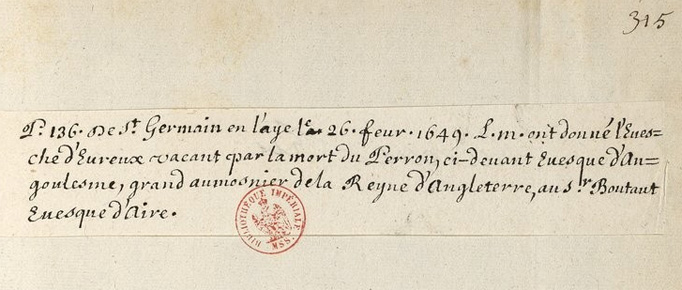 315
P. 136. De St. Germain en l'aye le 26. feur. 1649. L. m. ont donné l'Eues=
ché d'Eureux vacant par la mort du Perron, ci-deuant Euesque d'An=
goulesme, grand aumosnier de la Reyne d'Angleterre, au sr. Boutaut
Euesque d'Aire.
BIBLIOTHÈQUE IMPÉRIALE
MSS.